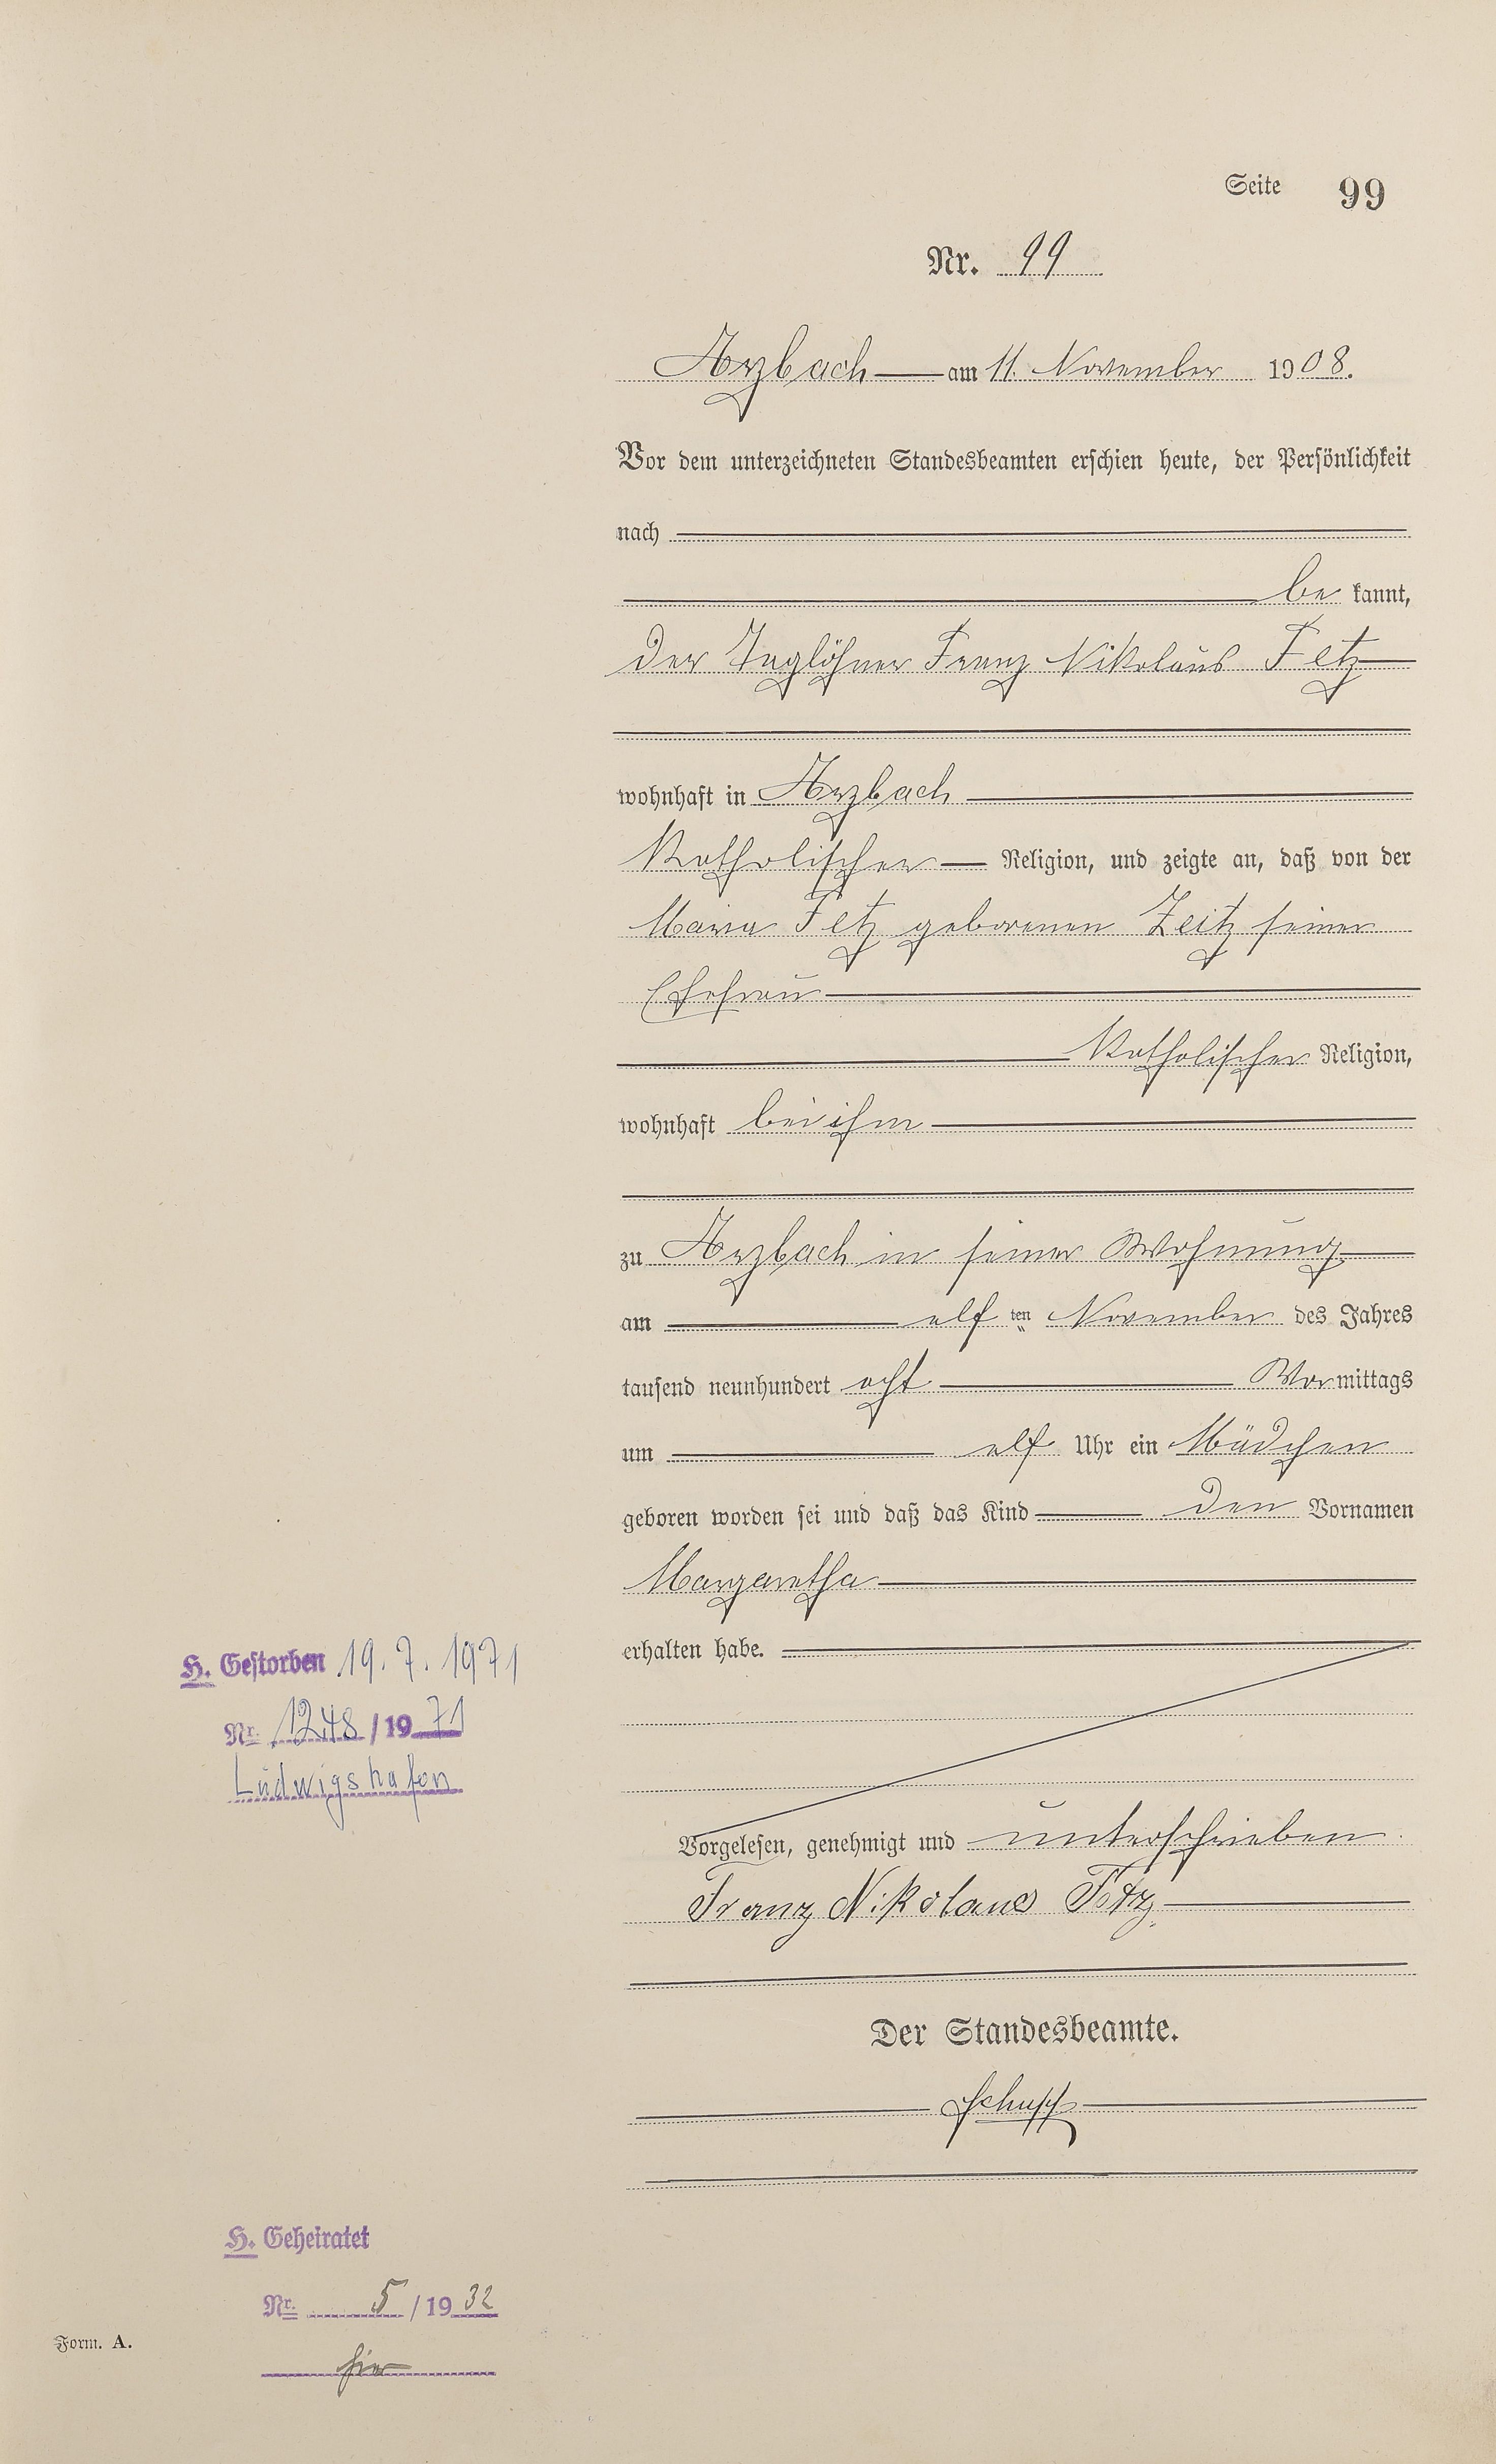 Seite 99
Nr. 99
Arzbach am 11. November 1908.
Vor dem unterzeichneten Standesbeamten erschien heute, der Persönlichkeit
nach
be kannt,
der Taglöhner Franz Nikolaus Fetz
wohnhaft in Arzbach
Katholischer Religion, und zeigte an, daß von der
Maria Fetz geborenen Zeitz seiner
Ehefrau
Katholischer Religion,
wohnhaft bei ihm
zu Arzbach in seiner Wohnung
am elf ten November des Jahres
tausend neunhundert acht Vormittags
um elf Uhr ein Mädchen
geboren worden sei und daß das Kind den Vornamen
Margaretha
erhalten habe.
H. Gestorben 19.7.1971
Nr. 1248/1971
Ludwigshafen
Vorgelesen, genehmigt und unterschrieben.
Franz Nikolaus Fetz
Der Standesbeamte.
Schupp
H. Geheiratet
Nr. 5/1932
hier
Form. A.